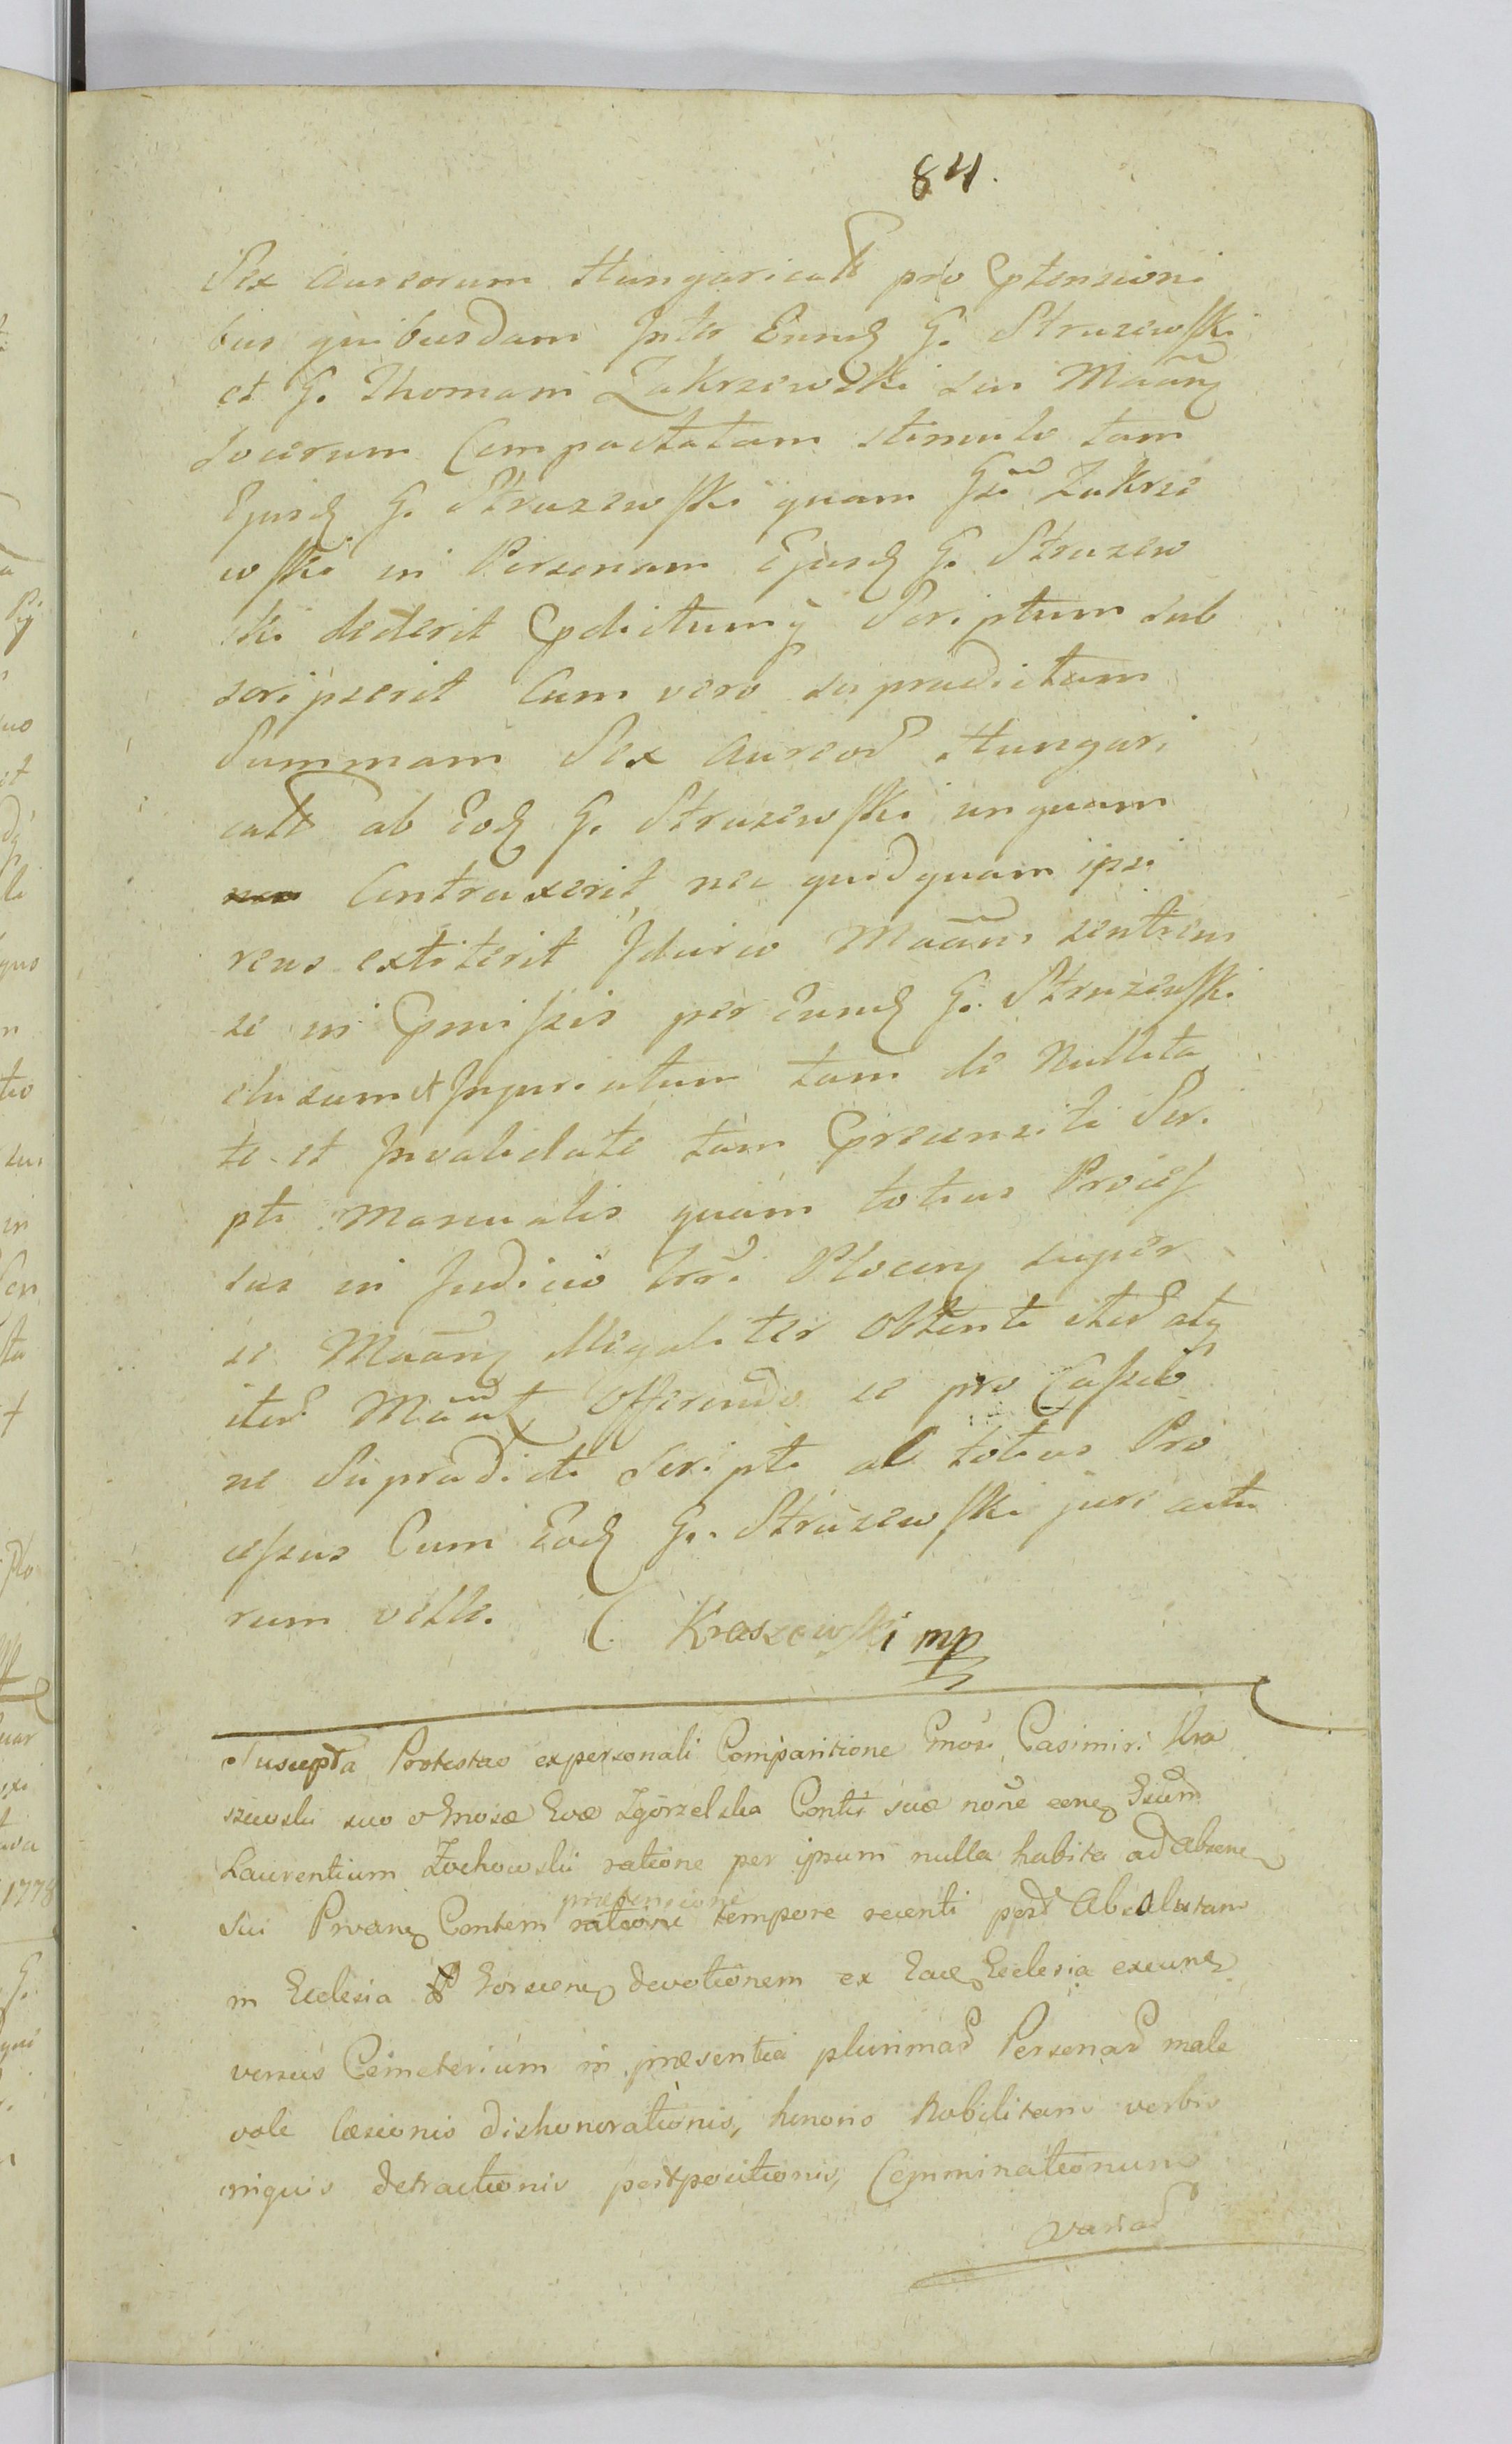 84.
Sex Aureorum Hungaricall pro Ptensioni
bus quibusdam Inter Eund G. Struzewski
et G. Thomam Zakrzewski sui Maãng
Socerum Compactatam stimulo tam
Ejusd G. Struzewski quam Gsi Zakrze
wski in Personam Ejusd G. Struzew
ski dederit Pdictumq Scriptum sub
scripserit Cum vero supradictam
Summam Sex Aureor Hungari
call ab Eod G. Struzewski unquam
Contraxerit, nec quidquam ipsi
reus extiterit Idcirco Maãns sentiens
se in Pmissis per Eund G. Struzewski
elusum et Injuriatum tam de Nullita
te et Invalidate tam Precensiti Scri
pti Manualis quam totius Proces
sus in Judicio Plocen super
se Maãng Illegaliter Obtenti iter atq
iter Maãt Offerendo se pro Cassio
ne Supradicti Scripti ac totius Pro
cessus Cum Eod G. Struzewski juri actu
rum velle. C. Kraszewski mp
Suscepta Protestao ex personali Comparitione Gnosi Casimiri Kra
szewski suo et Gnosæ Evæ Zgorzelska Contis suæ noñe Gsum
Laurentium Zochowski ratione per ipsum nulla habita ad absen
sui Prvan Contem ratione prætensione tempore recenti post Absolutam
in Ecclesia Gorscen devotionem ex Ead Ecclesia exeun
versus Cemeterium in præsentia plurimar Personar male
vole læsionis dishonorationis, honoris Nobilitaris verbis
iniquis detractionis postpositionis, Comminationum
variar